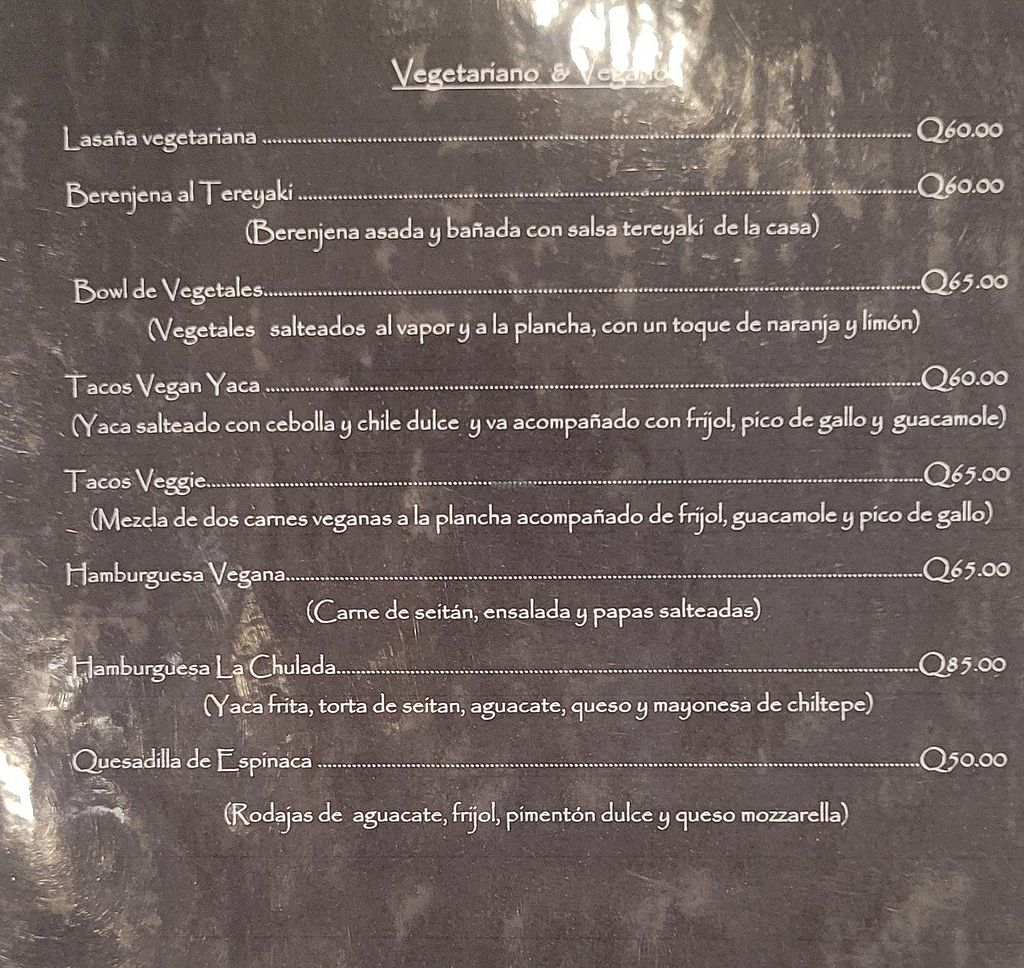 Vegetariano & Vegano
Lasaña vegetariana ........ Q60.00
Berenjena al Tereyaki ........ Q60.00
(Berenjena asada y bañada con salsa tereyaki de la casa)
Bowl de Vegetales........ Q65.00
(Vegetales salteados al vapor y a la plancha, con un toque de naranja y limón)
Tacos Vegan Yaca ........ Q60.00
(Yaca salteado con cebolla y chile dulce y va acompañado con frijol, pico de gallo y guacamole)
Tacos Veggie........ Q65.00
(Mezcla de dos carnes veganas a la plancha acompañado de frijol, guacamole y pico de gallo)
Hamburguesa Vegana........ Q65.00
(Carne de seitán, ensalada y papas salteadas)
Hamburguesa La Chulada........ Q85.00
(Yaca frita, torta de seitan, aguacate, queso y mayonesa de chiltepe)
Quesadilla de Espinaca ........ Q50.00
(Rodajas de aguacate, frijol, pimentón dulce y queso mozzarella)